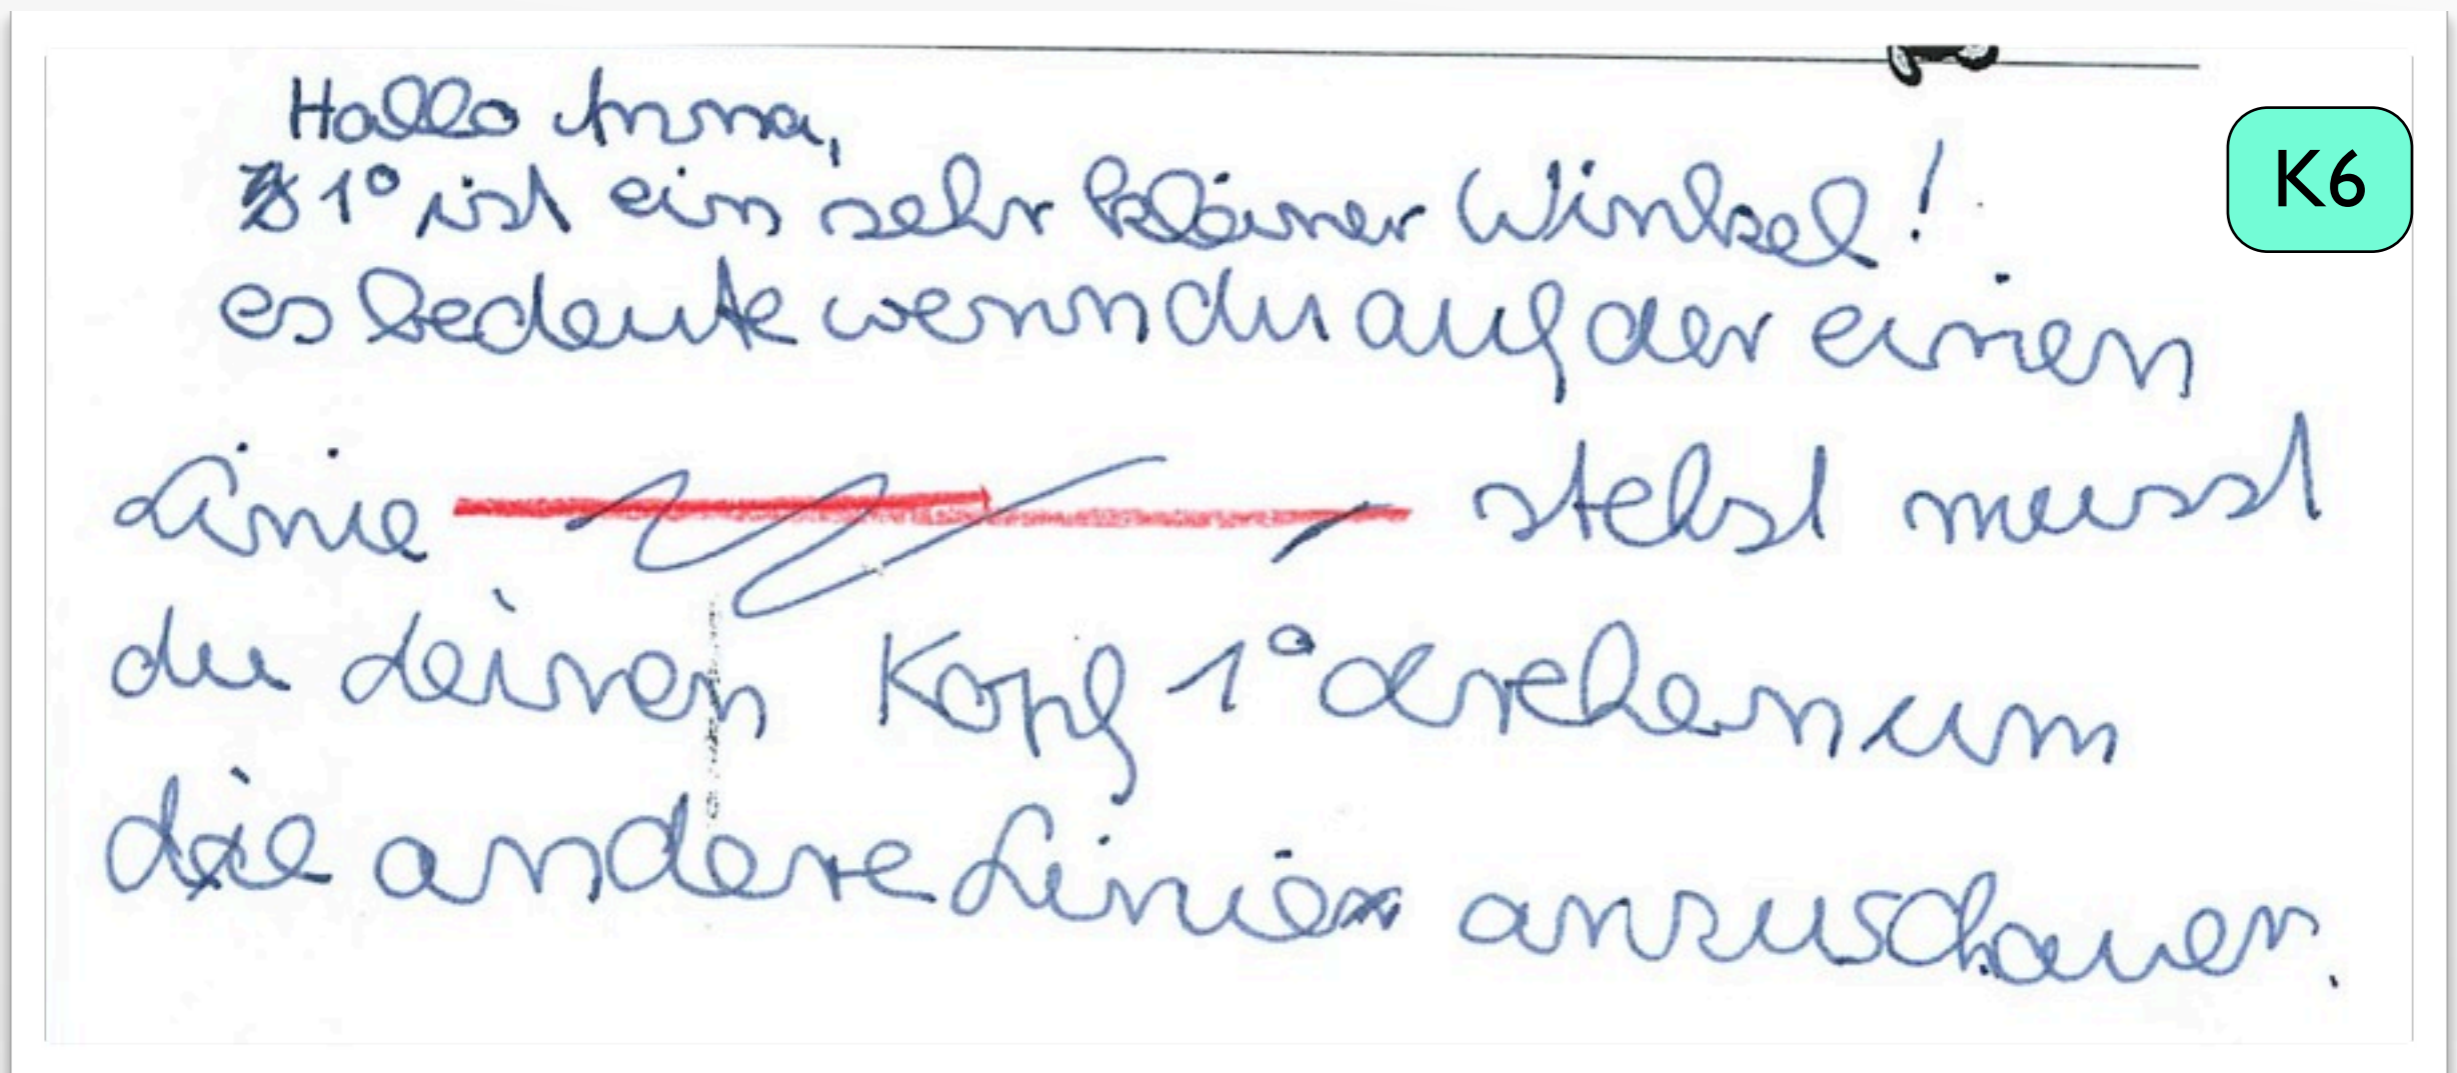 Hallo Anna,
1° ist ein sehr kleiner Winkel!
K6
es bedeute wenn du auf der einen
Linie stehst musst
du deinen Kopf 1° drehen um
die andere Linie anzuschauen.